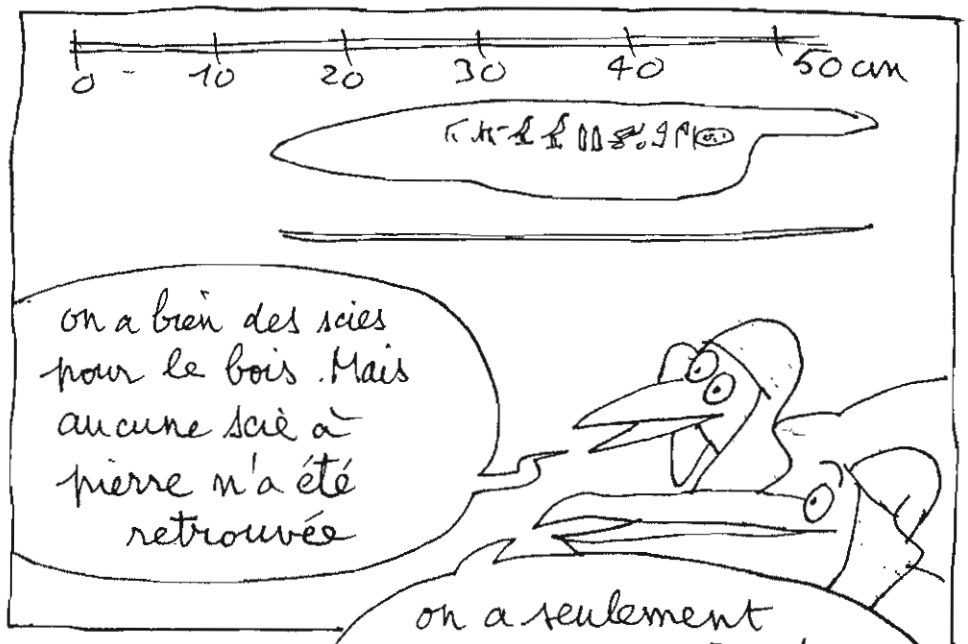 0 10 20 30 40 50 cm
on a bien des scies
pour le bois. Mais
aucune scie à
pierre n'a été
retrouvée
on a seulement